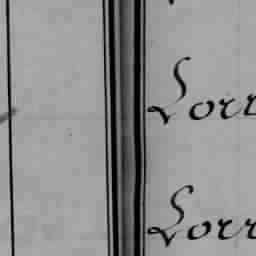 Lorr
Lorr